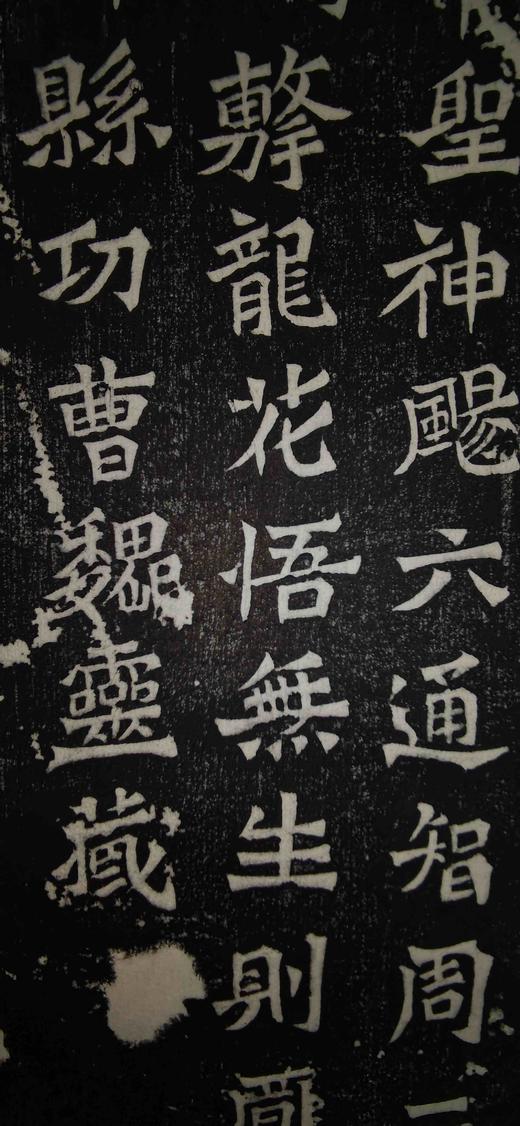 聖神颺六通智周
擊龍花悟無生則
縣功曹魏靈藏